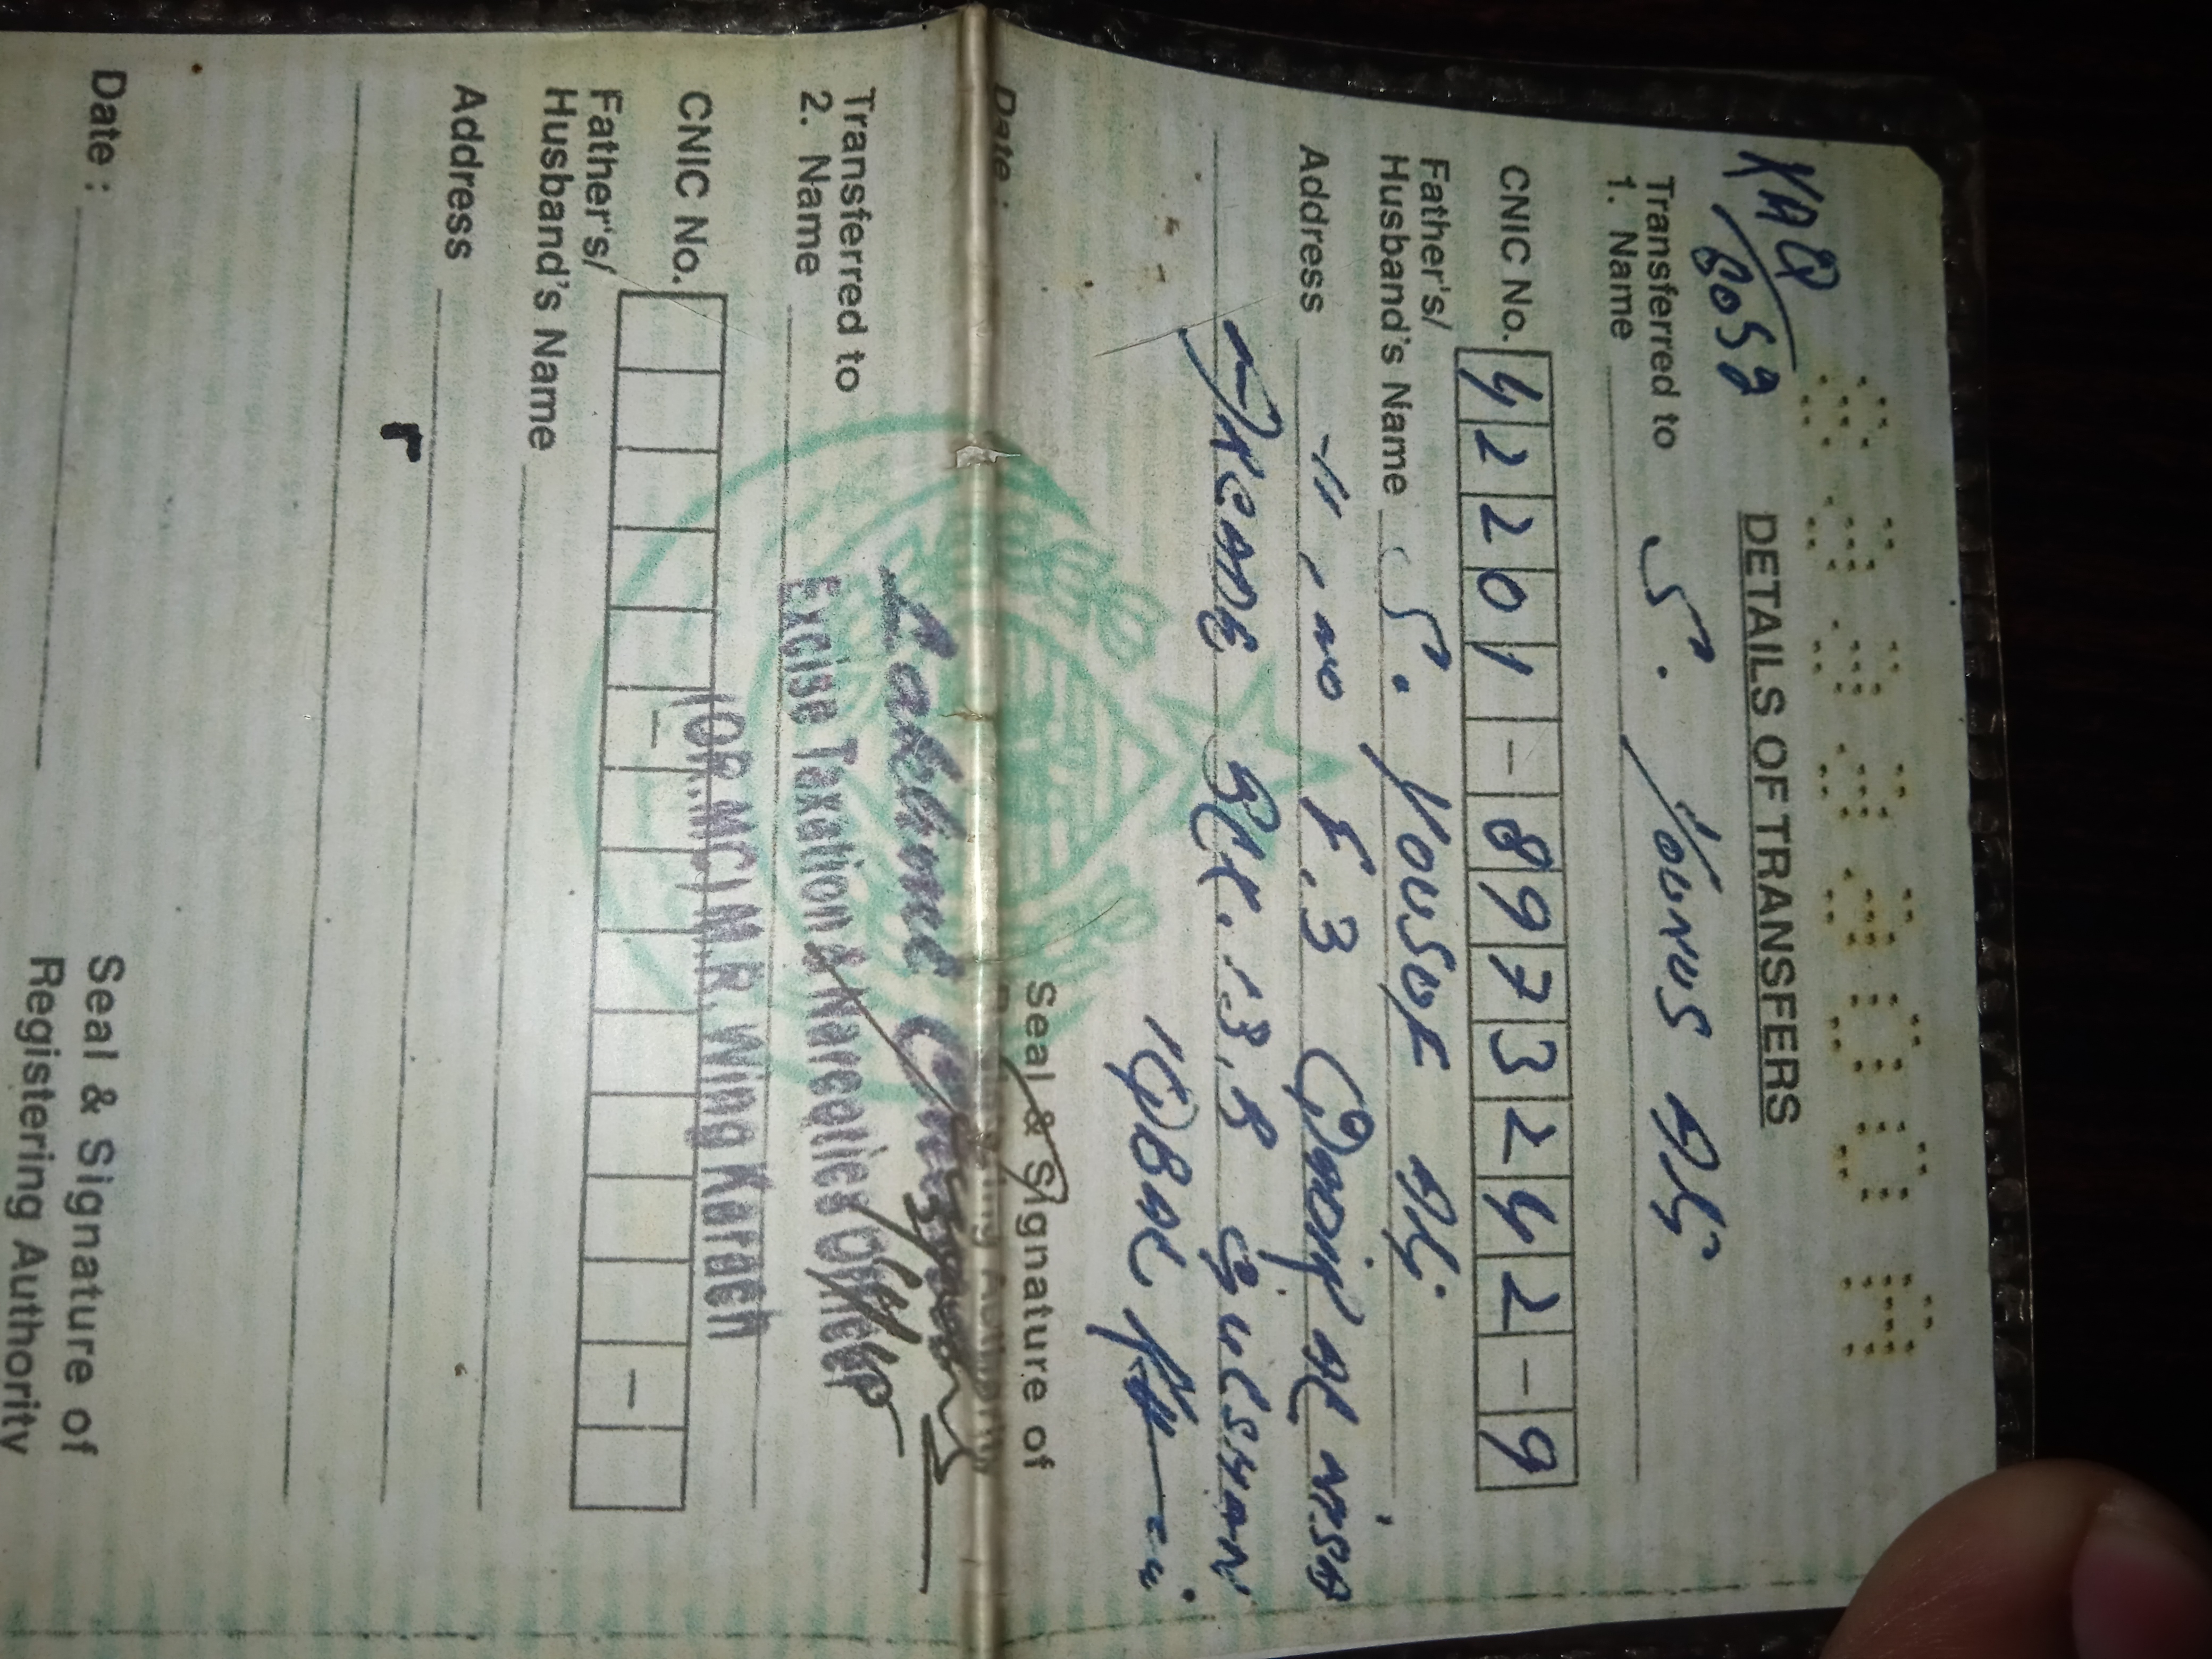 KAQ
8059
DETAILS OF TRANSFERS
Transferred to
1. Name S. Younus Ali
CNIC No. 42201-8973242-9
Father's/
Husband's Name S. Yousuf Ali
Address no F.3 nisa
Arcade BLK.13.B Gulshan
IQBAL
Date :
Seal & Signature of
Registering Authority
Transferred to
2. Name
Excise Taxation & Narcotics Officer
M.R. Wing Karachi
CNIC No. - -
Father's/
Husband's Name
Address
Date :
Seal & Signature of
Registering Authority